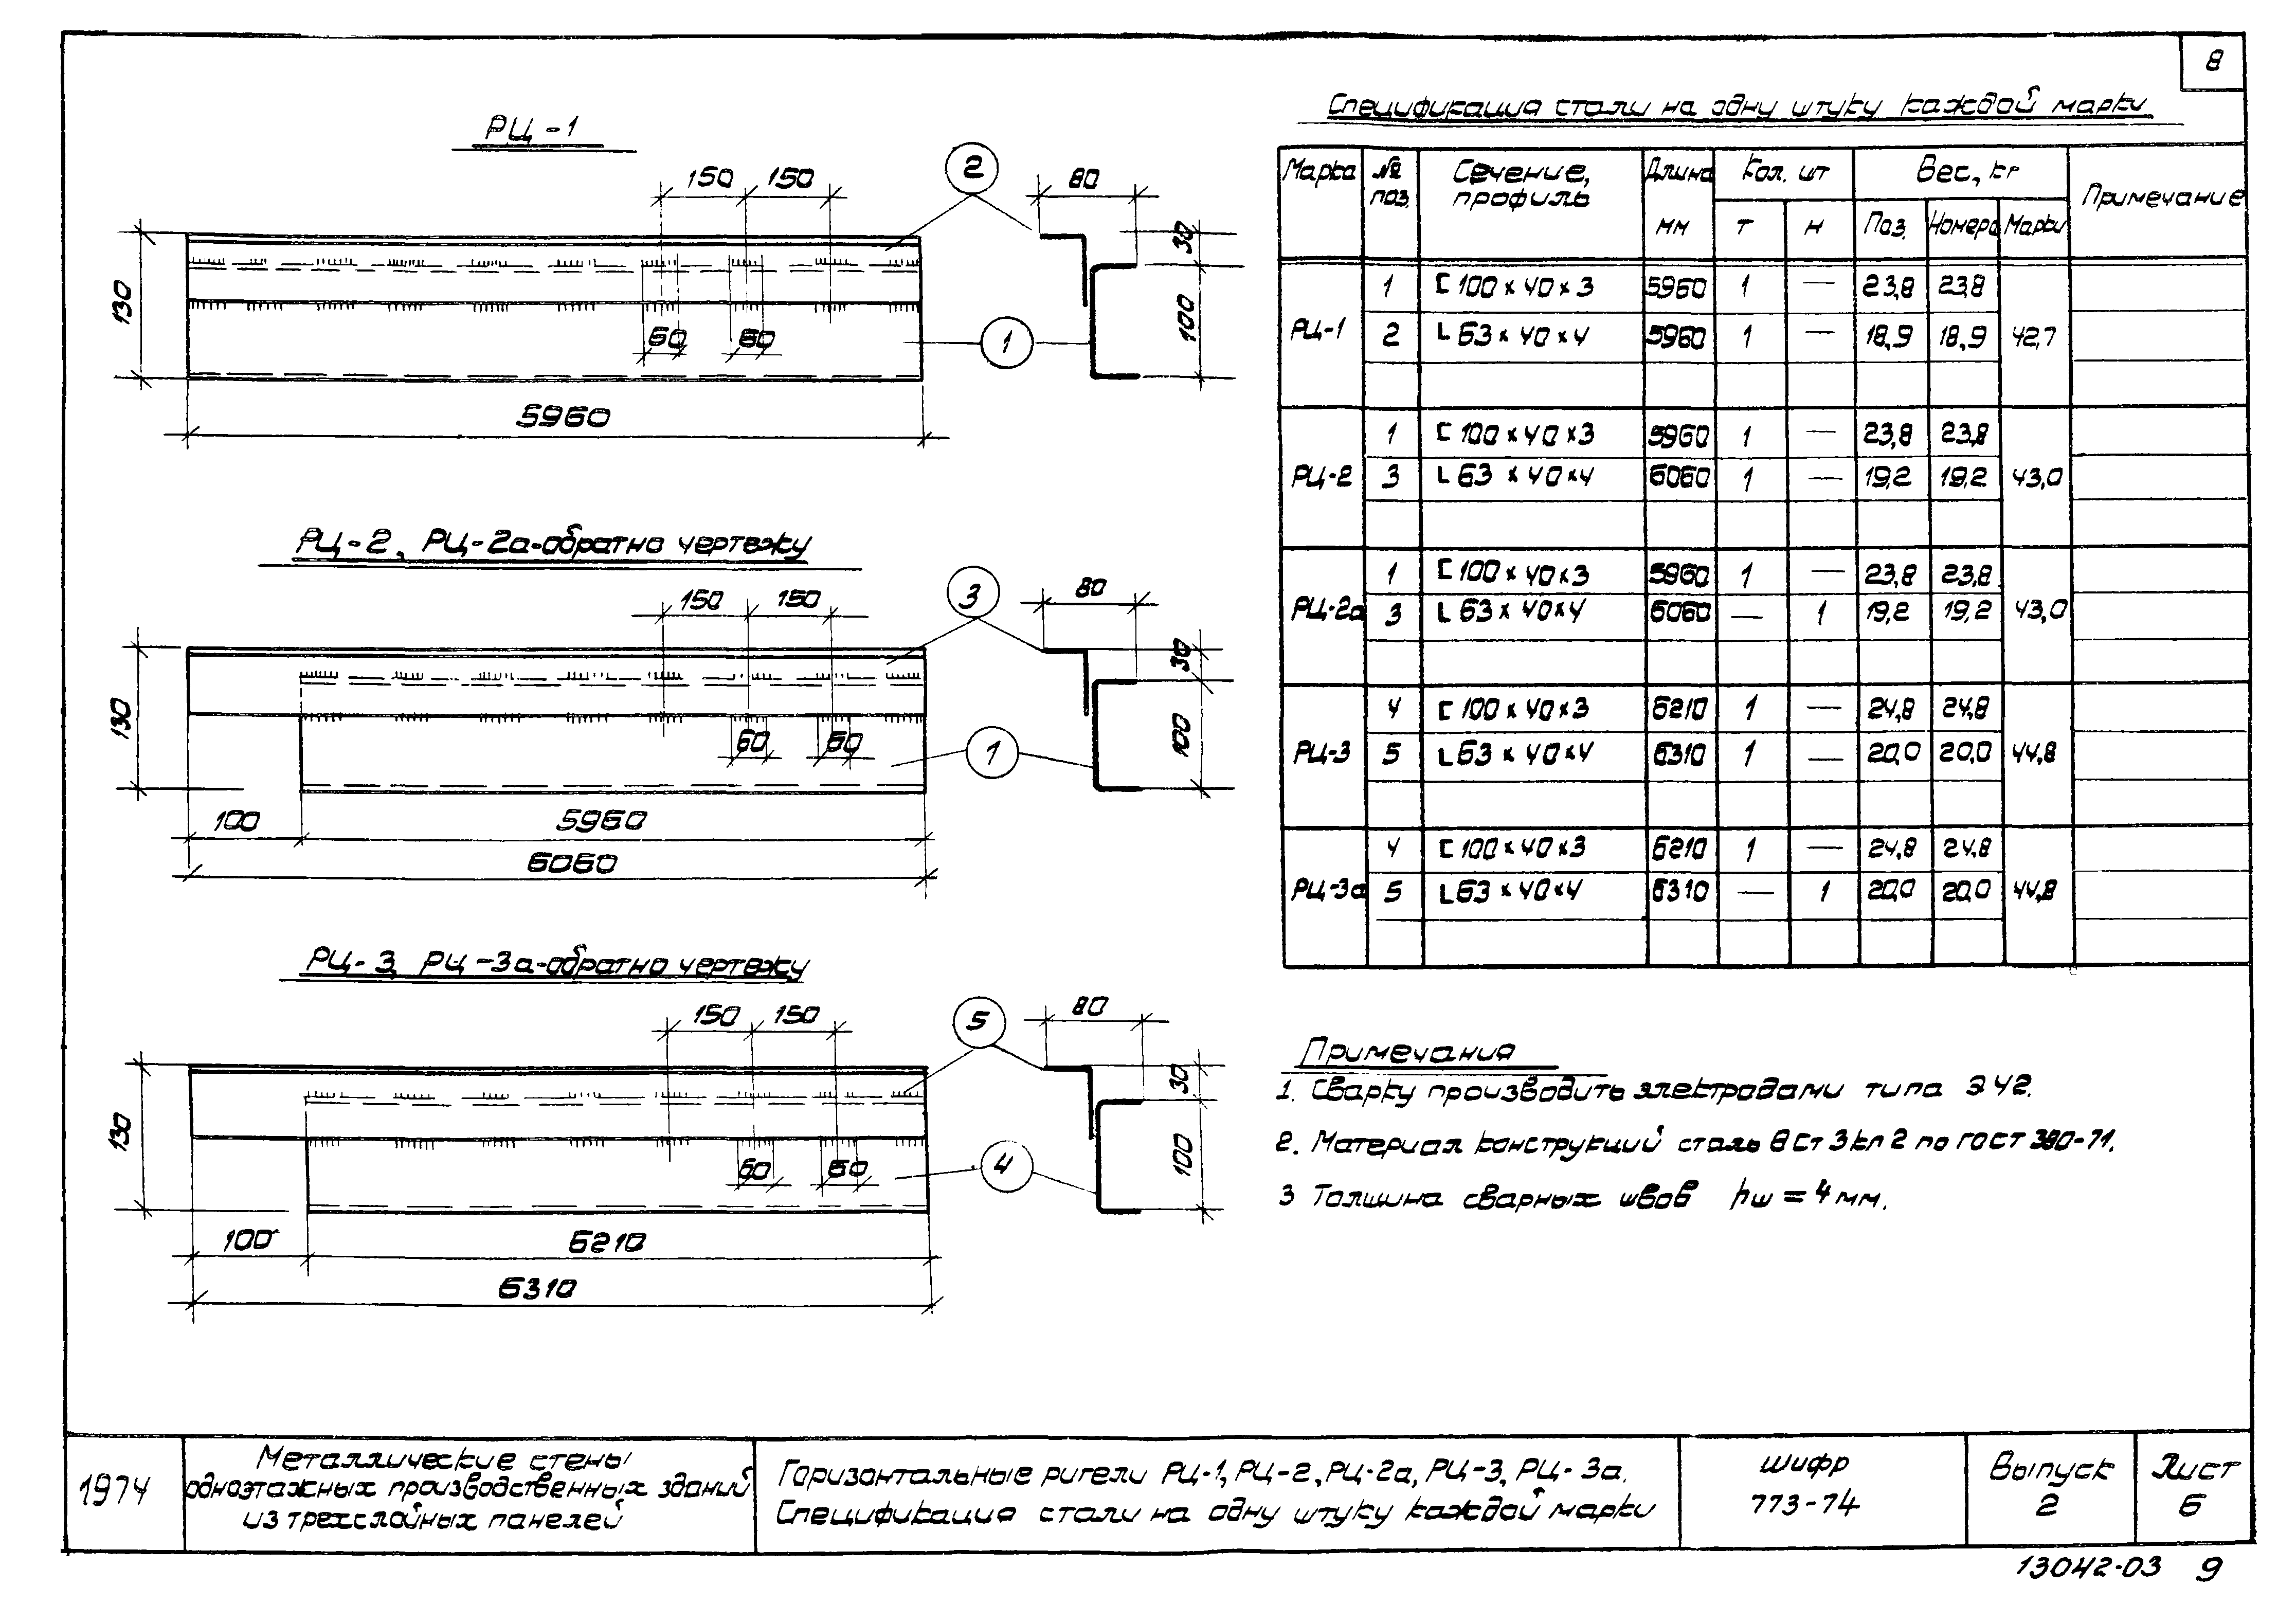 8
РЦ-1
150 150
2
80
30
130
60 60
1
100
5960
РЦ-2, РЦ-2а-обратно чертежу
150 150
3
80
30
130
60 60
1
100
100 5960
6060
РЦ-3, РЦ-3а-обратно чертежу
150 150
5
80
30
130
60 60
4
100
100 6210
6310
Спецификация стали на одну штуку каждой марки
Марка № поз. Сечение, профиль Длина мм Кол. шт Вес, кг Примечание
т н Поз. Номера Марки
РЦ-1
1 [ 100 x 40 x 3 5960 1 — 23,8 23,8
2 L 63 x 40 x 4 5960 1 — 18,9 18,9 42,7
РЦ-2
1 [ 100 x 40 x 3 5960 1 — 23,8 23,8
3 L 63 x 40 x 4 6060 1 — 19,2 19,2 43,0
РЦ-2а
1 [ 100 x 40 x 3 5960 1 — 23,8 23,8
3 L 63 x 40 x 4 6060 — 1 19,2 19,2 43,0
РЦ-3
4 [ 100 x 40 x 3 6210 1 — 24,8 24,8
5 L 63 x 40 x 4 6310 1 — 20,0 20,0 44,8
РЦ-3а
4 [ 100 x 40 x 3 6210 1 — 24,8 24,8
5 L 63 x 40 x 4 6310 — 1 20,0 20,0 44,8
Примечания
1. Сварку производить электродами типа Э42.
2. Материал конструкций сталь ВСт3кп2 по ГОСТ 380-71.
3 Толщина сварных швов hш = 4 мм.
1974
Металлические стены
одноэтажных производственных зданий
из трехслойных панелей
Горизонтальные ригели РЦ-1, РЦ-2, РЦ-2а, РЦ-3, РЦ-3а.
Спецификация стали на одну штуку каждой марки
шифр
773-74
Выпуск
2
Лист
6
13042-03 9